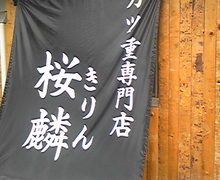 カツ重専門店
桜麟
きりん